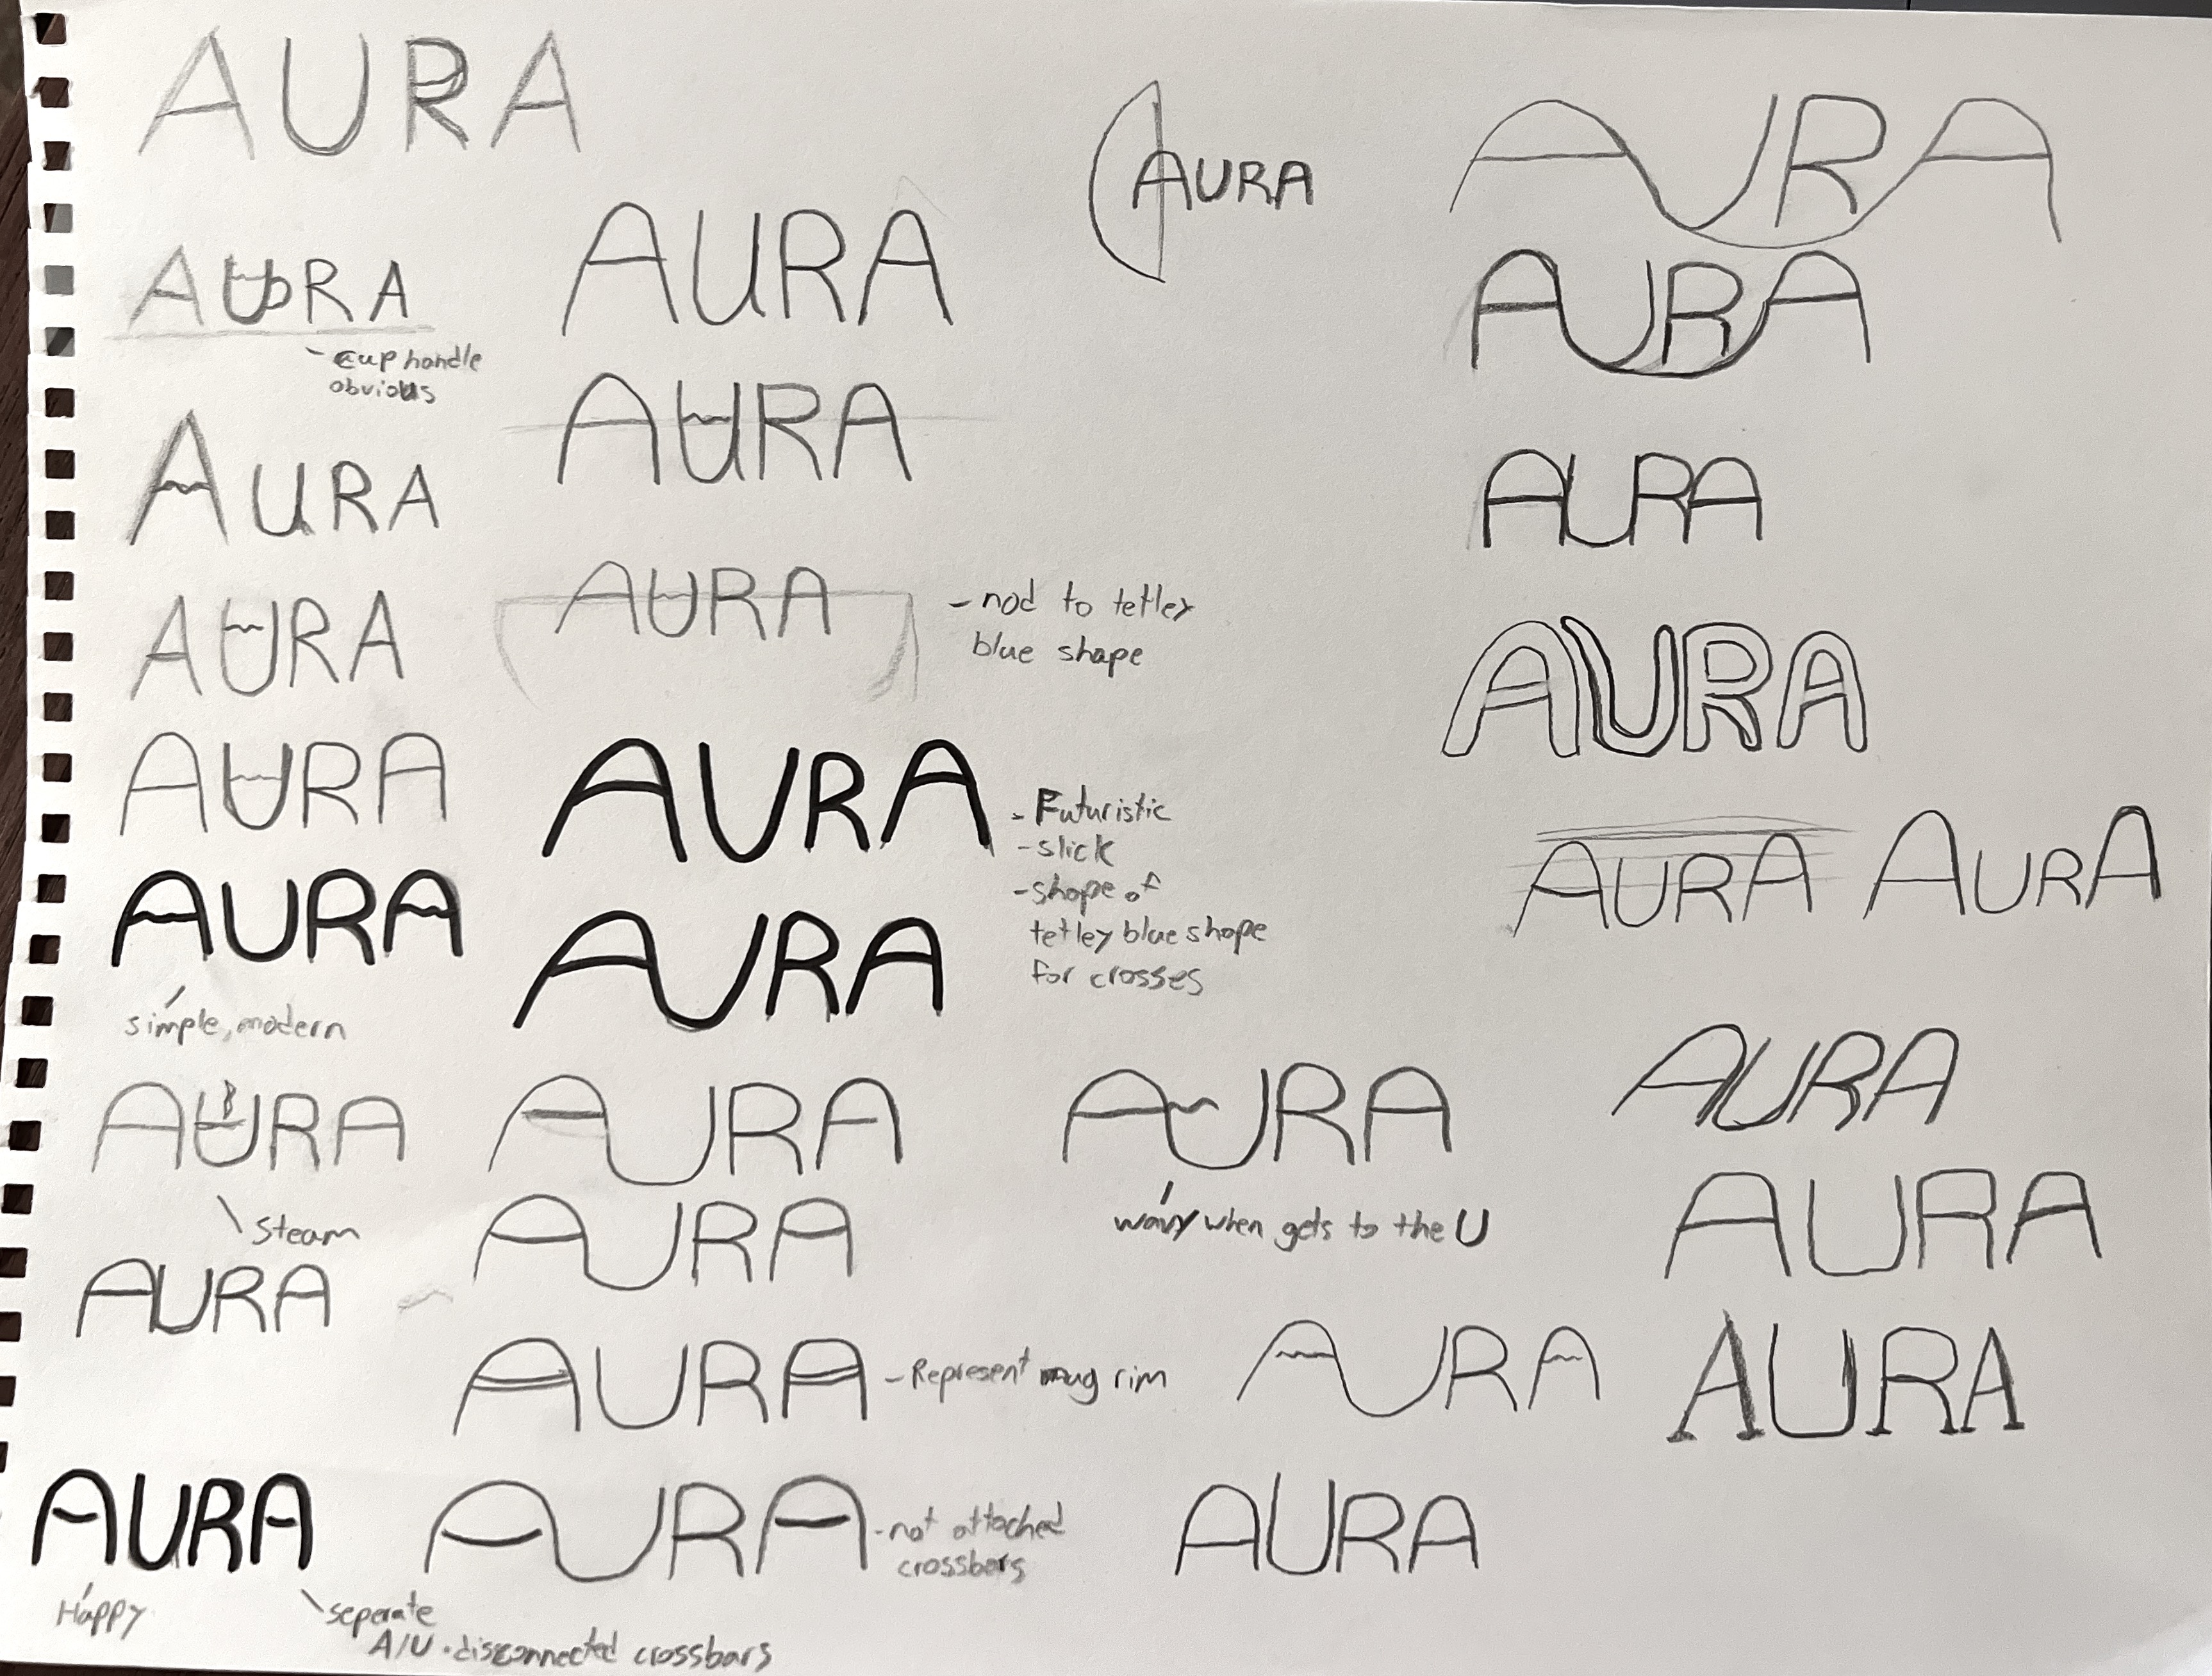 AURA
AURA
- cup handle
obvious
AURA
AURA
AURA
AURA
simple, modern
AURA
steam
AURA
AURA
Happy
seperate
A/U · disconnected crossbars
AURA
AURA
AURA
- nod to tetley
blue shape
AURA
- Futuristic
- slick
- shape of
tetley blue shape
for crosses
AURA
AURA
AURA
AURA
- Represent mug rim
AURA
- not attached
crossbars
AURA
AURA
wavy when gets to the U
AURA
AURA
AURA
AURA
AURA
AURA
AURA
AURA
AURA
AURA
AURA